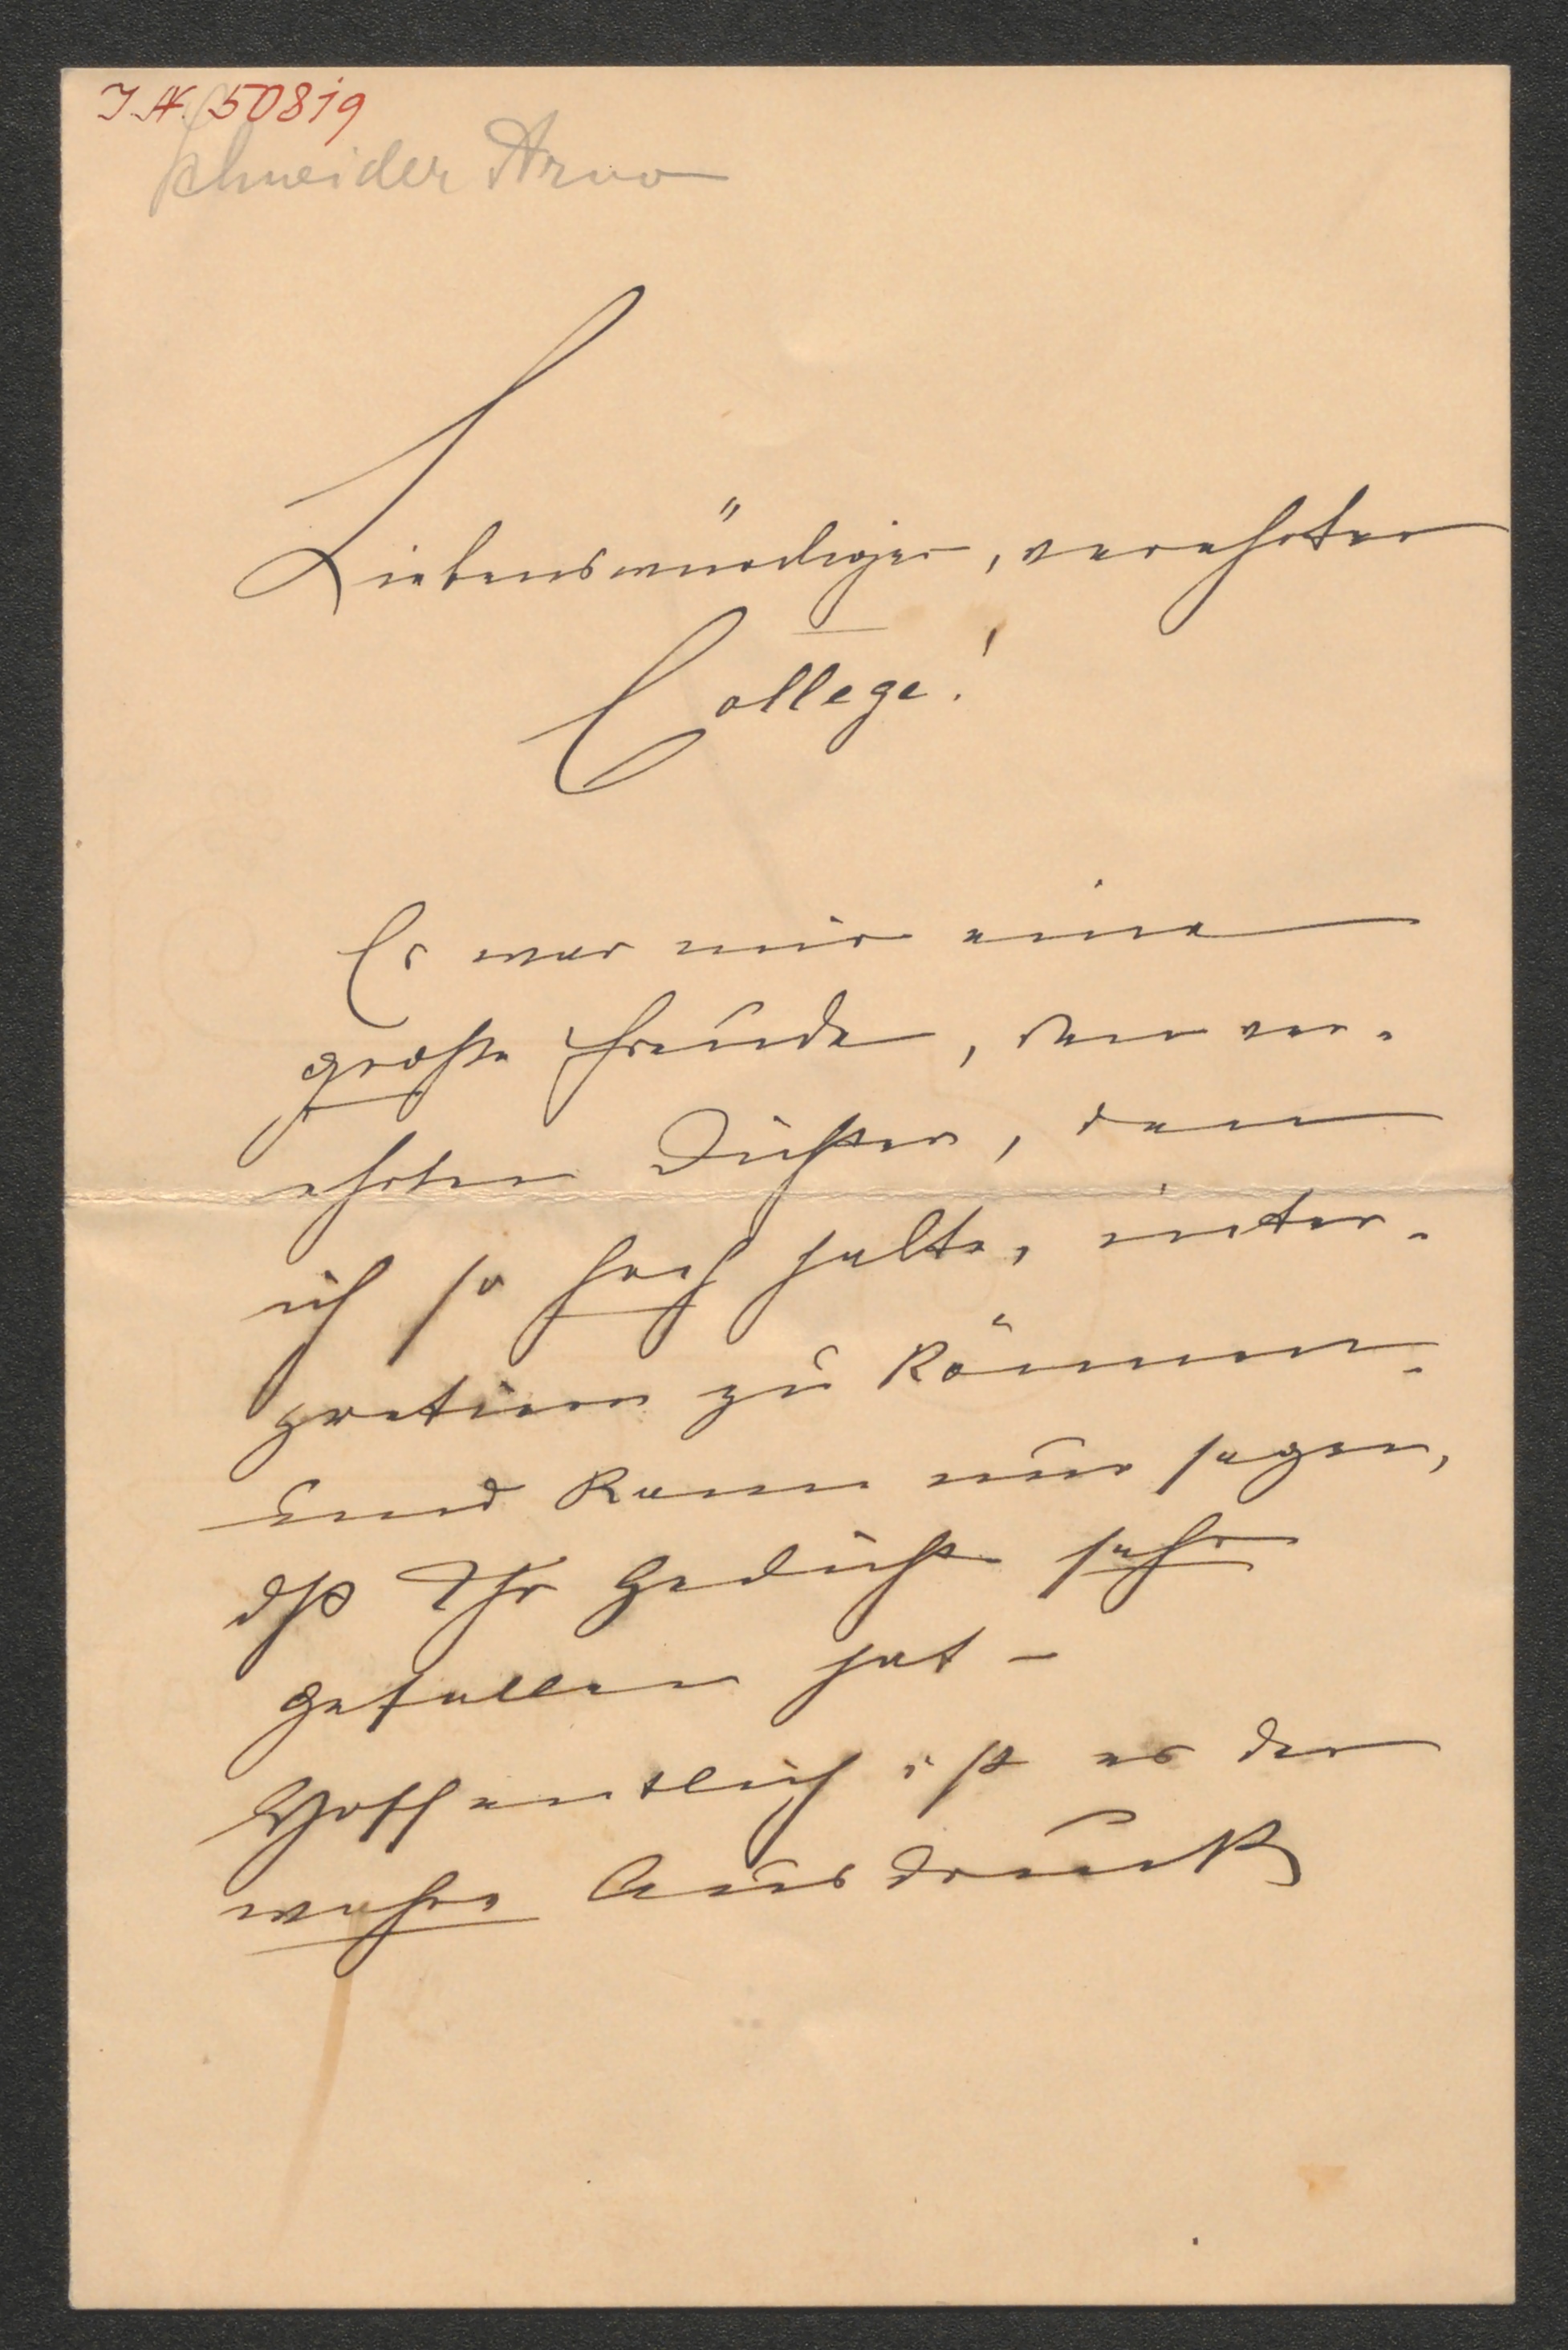 I.N. 50819
Schneider Arno
Liebenswürdiger, verehrter
College!
Es war mir eine
große Freude, den ver-
ehrten Dichter, den
ich so hoch halte, inter-
pretiren zu können.
und kann nur sagen,
dß Ihr Gedicht sehr
gefallen hat –
Hoffentlich ist es der
wahre Ausdruck